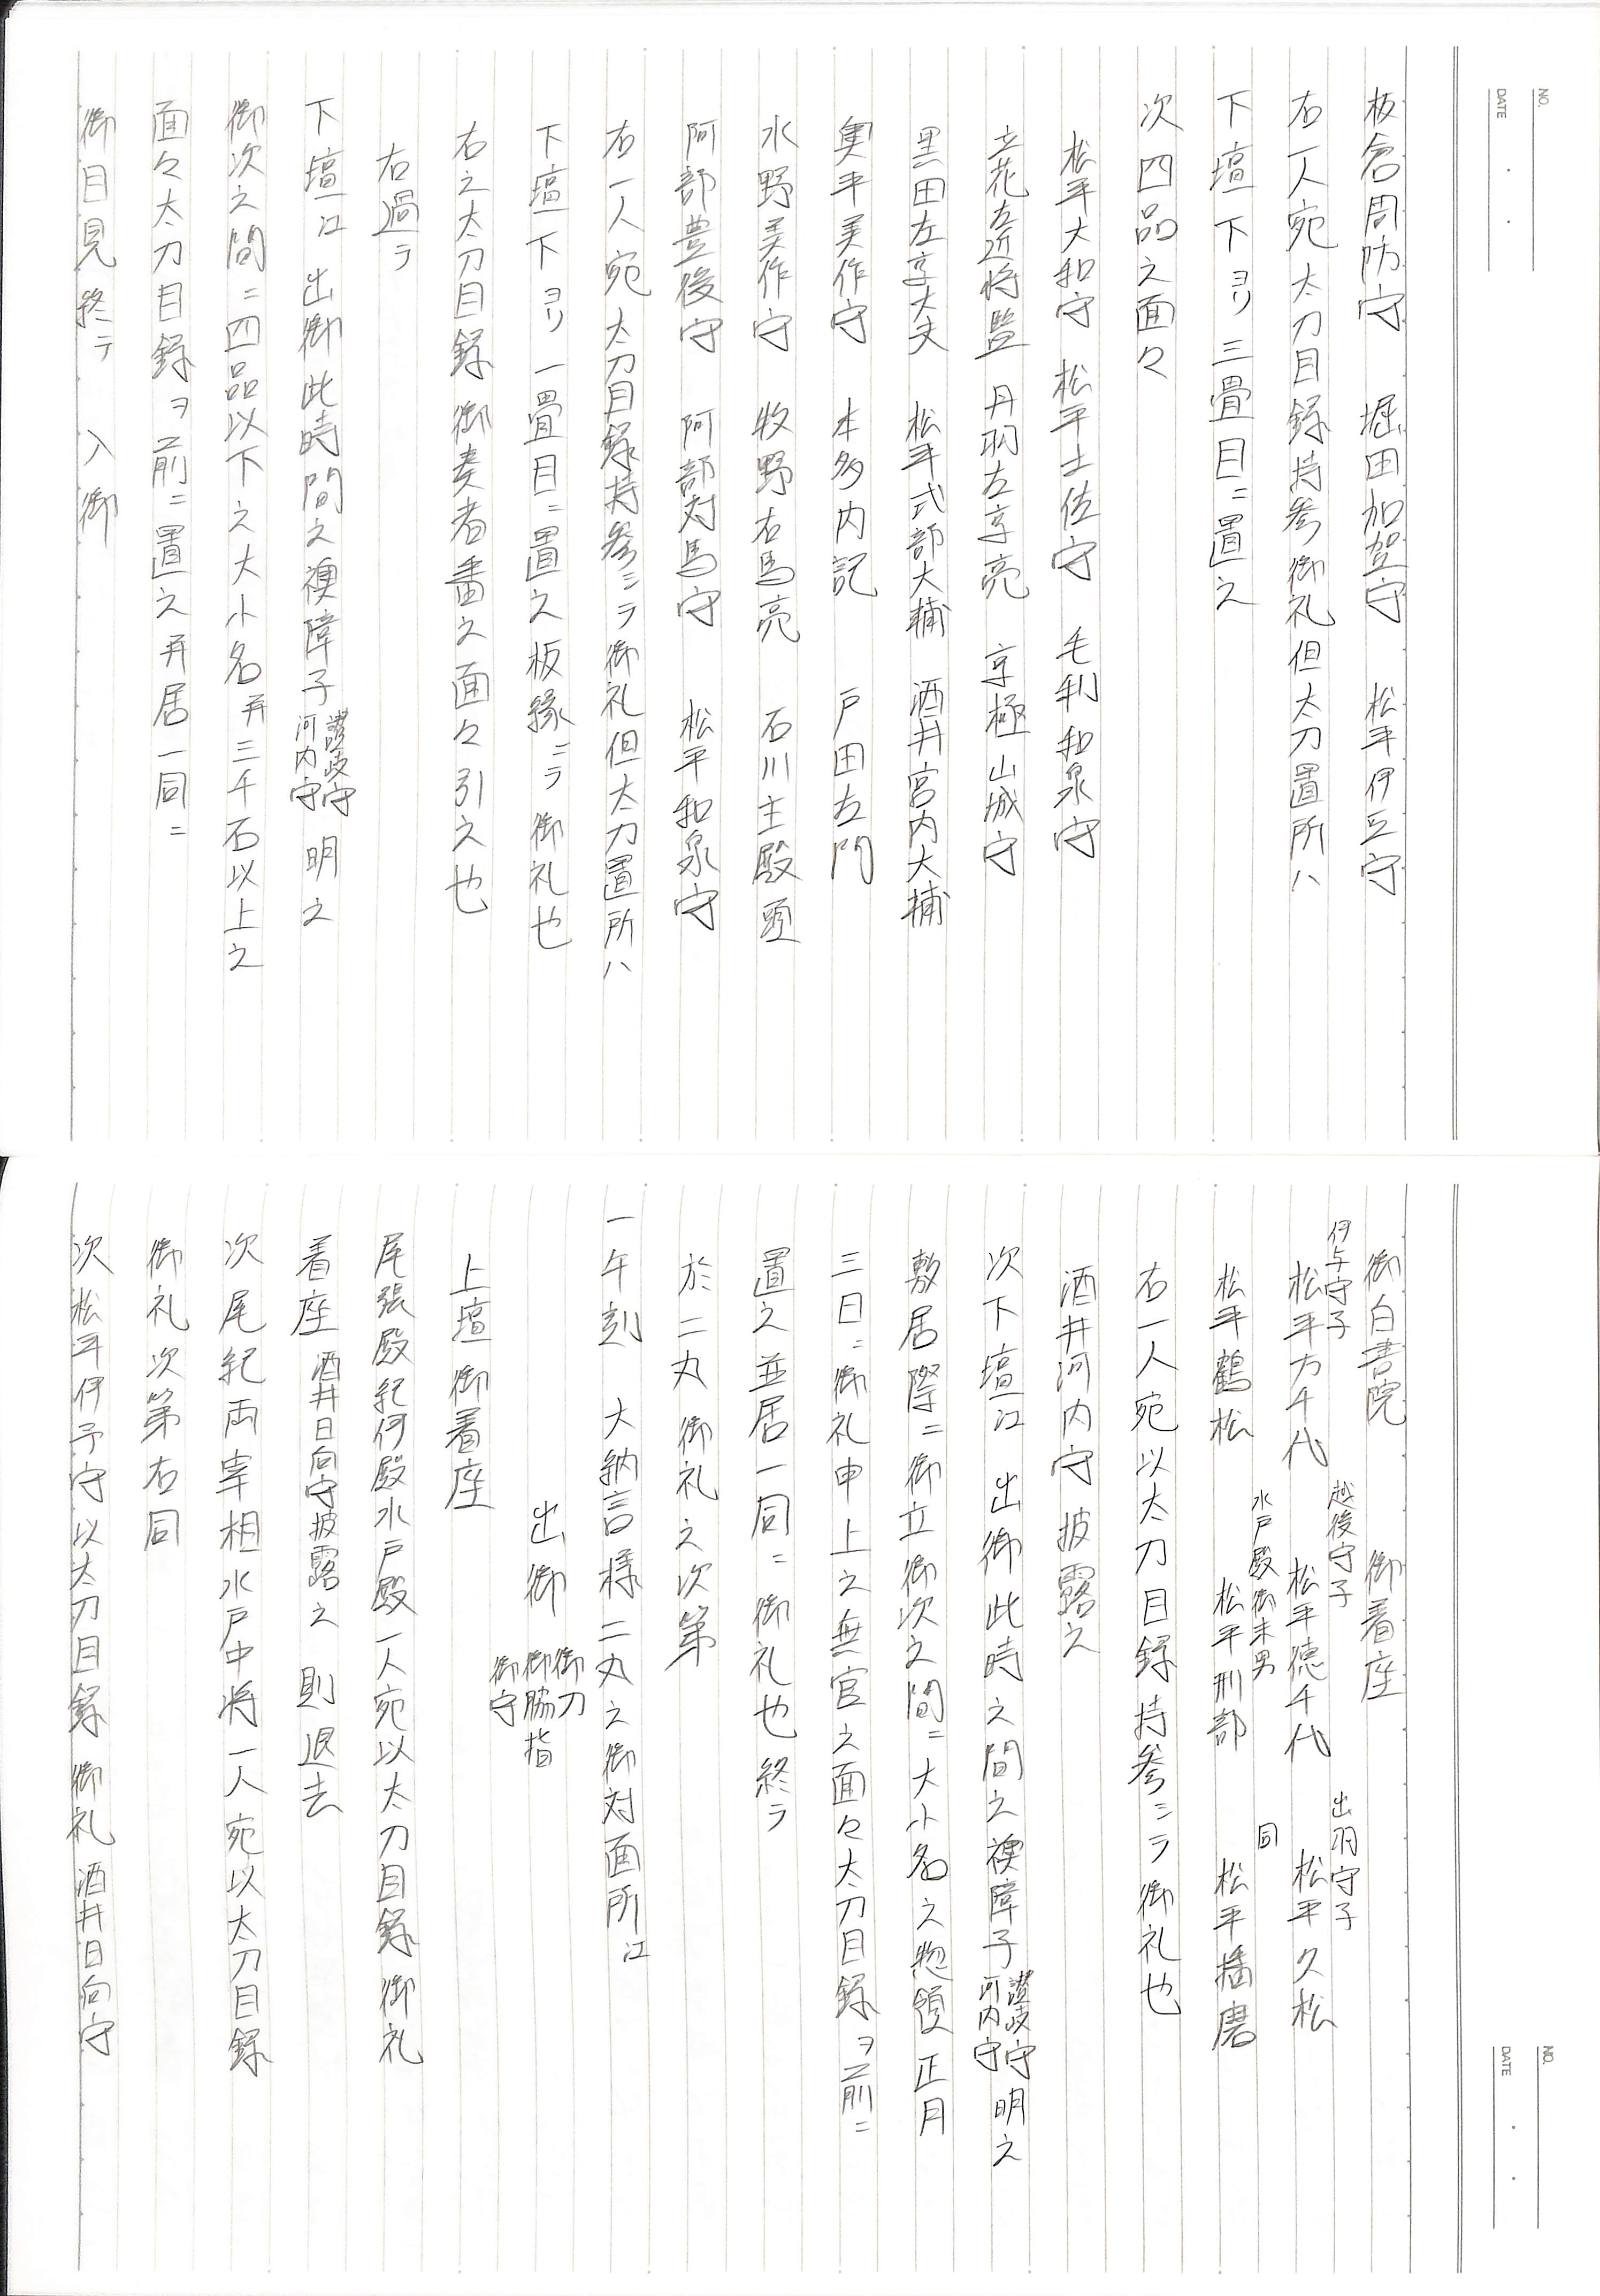 NO.
DATE
板倉周防守　堀田加賀守　松平伊豆守
右一人宛太刀目録持参御礼但太刀置所ハ
下壇下ヨリ三畳目ニ置之
次四品之面々
松平大和守　松平土佐守　毛利和泉守
立花左近将監　丹羽左京亮　京極山城守
黒田左京大夫　松平式部大輔　酒井宮内大輔
奥平美作守　本多内記　戸田左門
水野美作守　牧野右馬亮　石川主殿頭
阿部豊後守　阿部対馬守　松平和泉守
右一人宛太刀目録持参ニテ御礼但太刀置所ハ
下壇下ヨリ一畳目ニ置之板縁ニテ御礼也
右之太刀目録御奏者番之面々引之也
右過テ
下壇江　出御此時間之襖障子讃岐守河内守明之
御次之間ニ四品以下之大小名并三千石以上之
面々太刀目録ヲ前ニ置之并居一同ニ
御目見終テ　入御
NO.
DATE
御白書院　御着座
伊与守子　越後守子　出羽守子
松平万千代　松平徳千代　松平久松
水戸殿御末男　同
松平鶴松　松平刑部　松平播磨
右一人宛以太刀目録持参ニテ御礼也
酒井河内守披露之
次下壇江　出御此時之間之襖障子讃岐守河内守明之
敷居際ニ御立御次之間ニ大小名之惣領正月
三日ニ御礼申上之無官之面々太刀目録ヲ前ニ
置之並居一同ニ御礼也終テ
於二丸御礼之次第
一午刻　大納言様二丸之御対面所江
出御　御刀　御脇指　御守
上壇御着座
尾張殿紀伊殿水戸殿一人宛以太刀目録御礼
着座　酒井日向守披露之　則退去
次尾紀両宰相水戸中将一人宛以太刀目録
御礼次第右同
次松平伊予守以太刀目録御礼酒井日向守